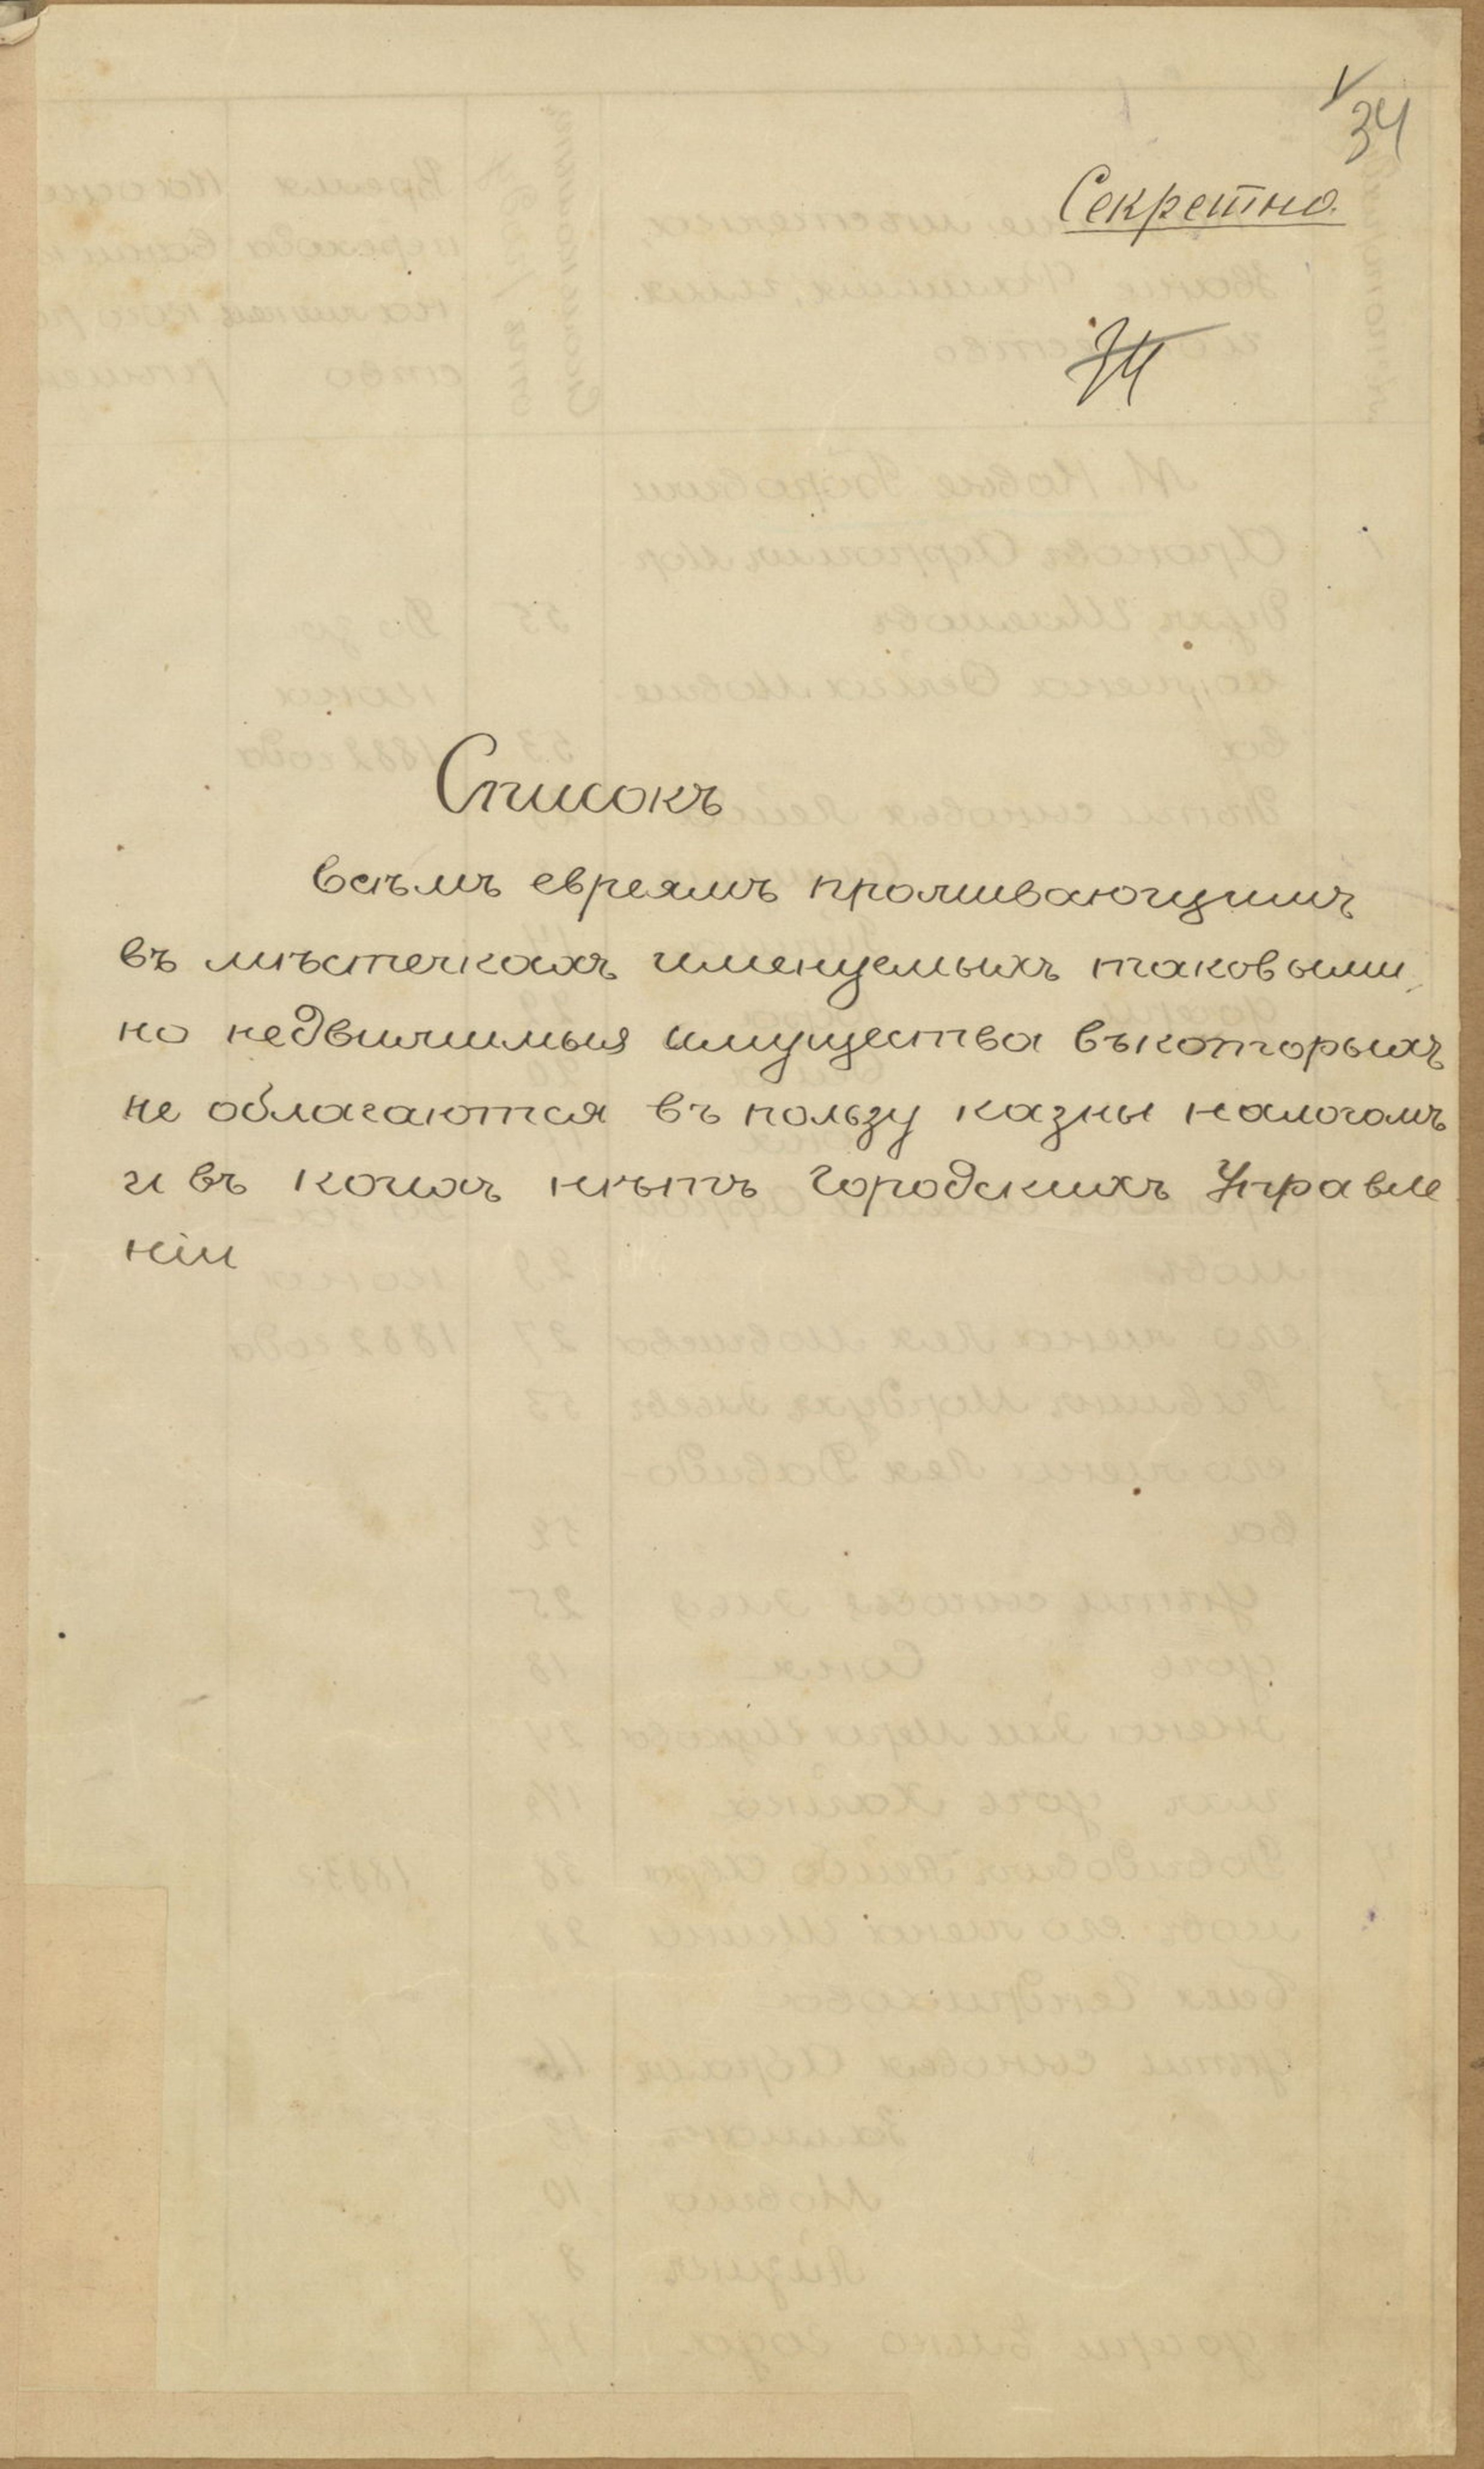 34
Секретно.
34
Списокъ
всѣмъ евреямъ проживающимъ
въ мѣстечкахъ именуемыхъ таковыми,
но недвижимыя имущества въ которыхъ
не облагаются въ пользу казны налогомъ
и въ коихъ нѣтъ Городскихъ Управле
ніи